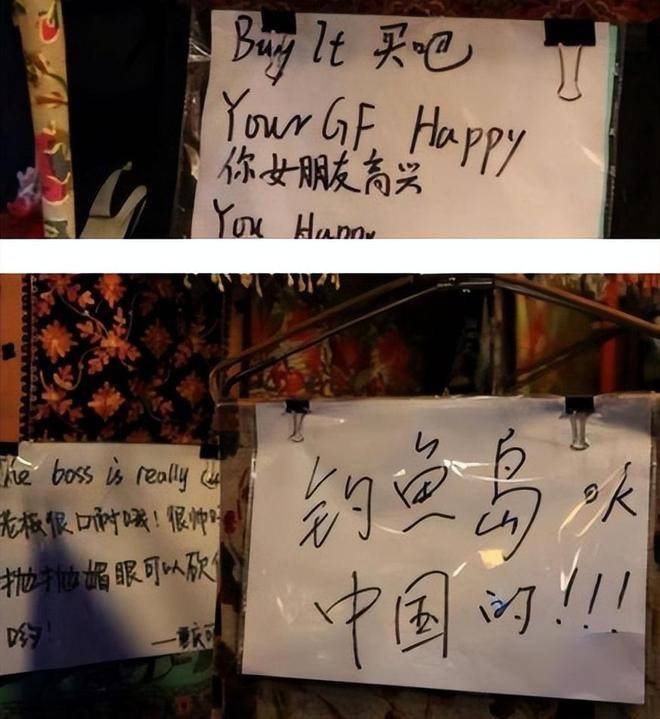 Buy It 买吧
Your GF Happy
你女朋友高兴
You Happy
The boss is really
老板很口耐哦！很帅
抛抛媚眼可以砍
哟！
钓鱼岛 ok
中国的!!!